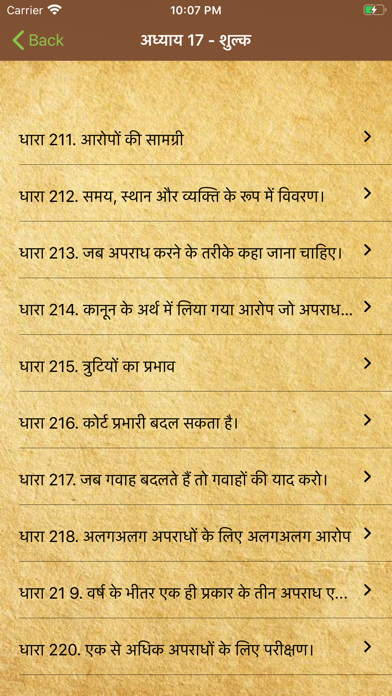 Carrier 10:07 PM
Back अध्याय 17 - शुल्क
धारा 211. आरोपों की सामग्री
धारा 212. समय, स्थान और व्यक्ति के रूप में विवरण।
धारा 213. जब अपराध करने के तरीके कहा जाना चाहिए।
धारा 214. कानून के अर्थ में लिया गया आरोप जो अपराध...
धारा 215. त्रुटियों का प्रभाव
धारा 216. कोर्ट प्रभारी बदल सकता है।
धारा 217. जब गवाह बदलते हैं तो गवाहों की याद करो।
धारा 218. अलगअलग अपराधों के लिए अलगअलग आरोप
धारा 21 9. वर्ष के भीतर एक ही प्रकार के तीन अपराध ए...
धारा 220. एक से अधिक अपराधों के लिए परीक्षण।